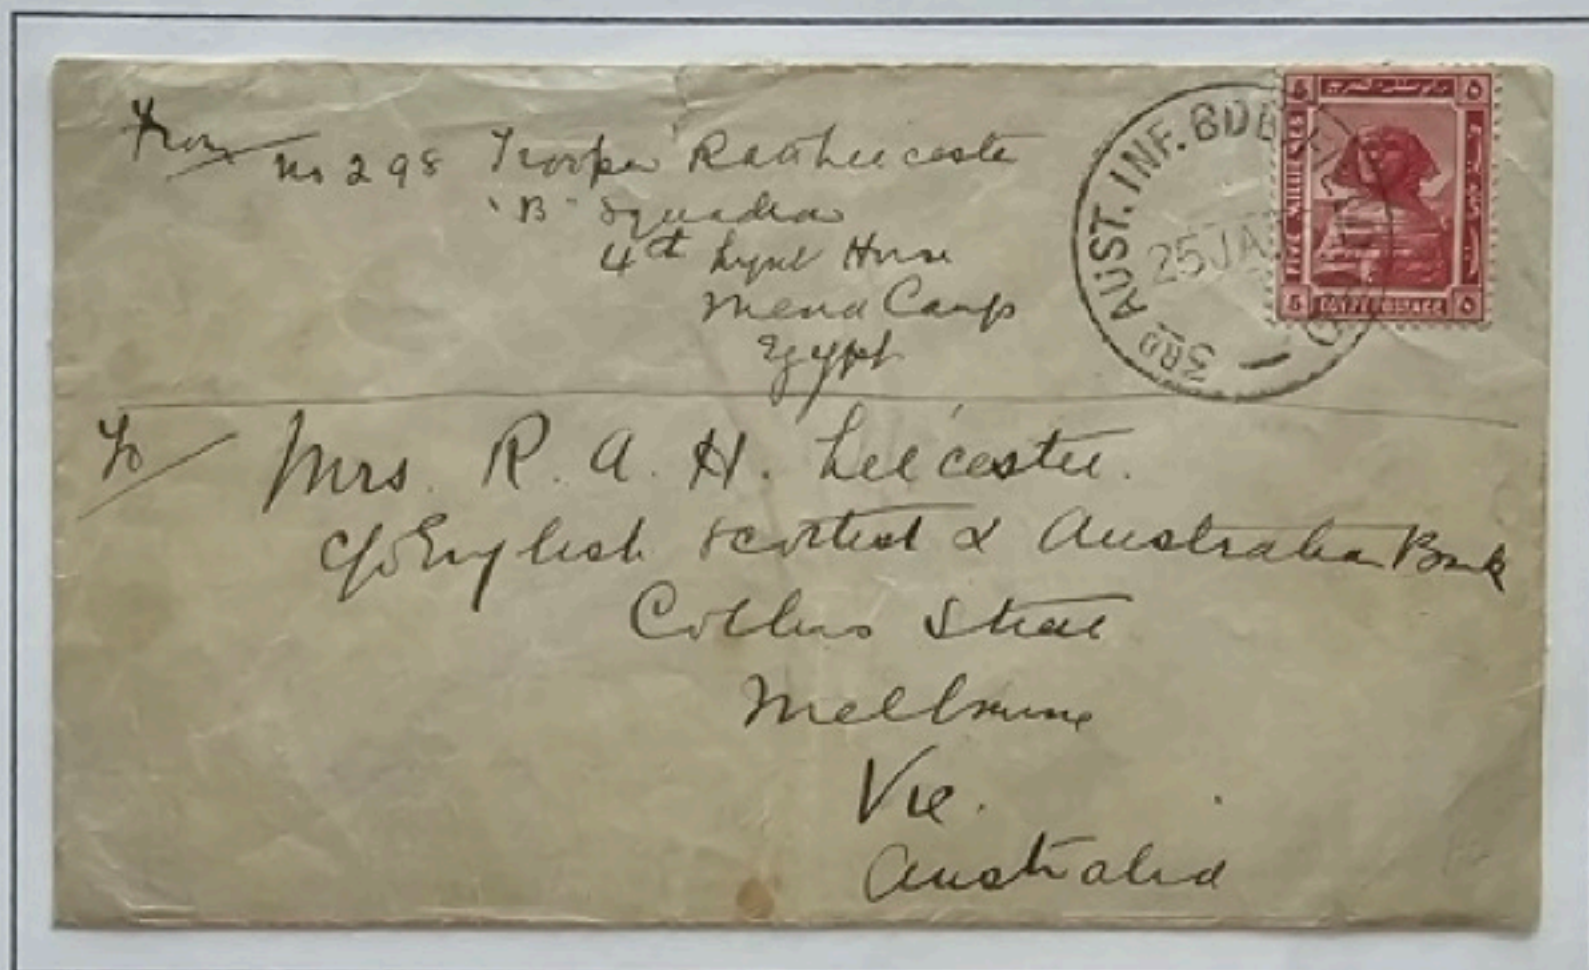 From
No 298 Trooper R A H Leicester
"B" Squadron
4th Light Horse
Mena Camp
Egypt
3RD AUST. INF. BDE
25 JA
FIVE MILLIEMES
EGYPT POSTAGE
5
5
٥
٥
To
Mrs. R. A. H. Leicester.
c/o English Scottish & Australian Bank
Collins Street
Melbourne
Vic.
Australia